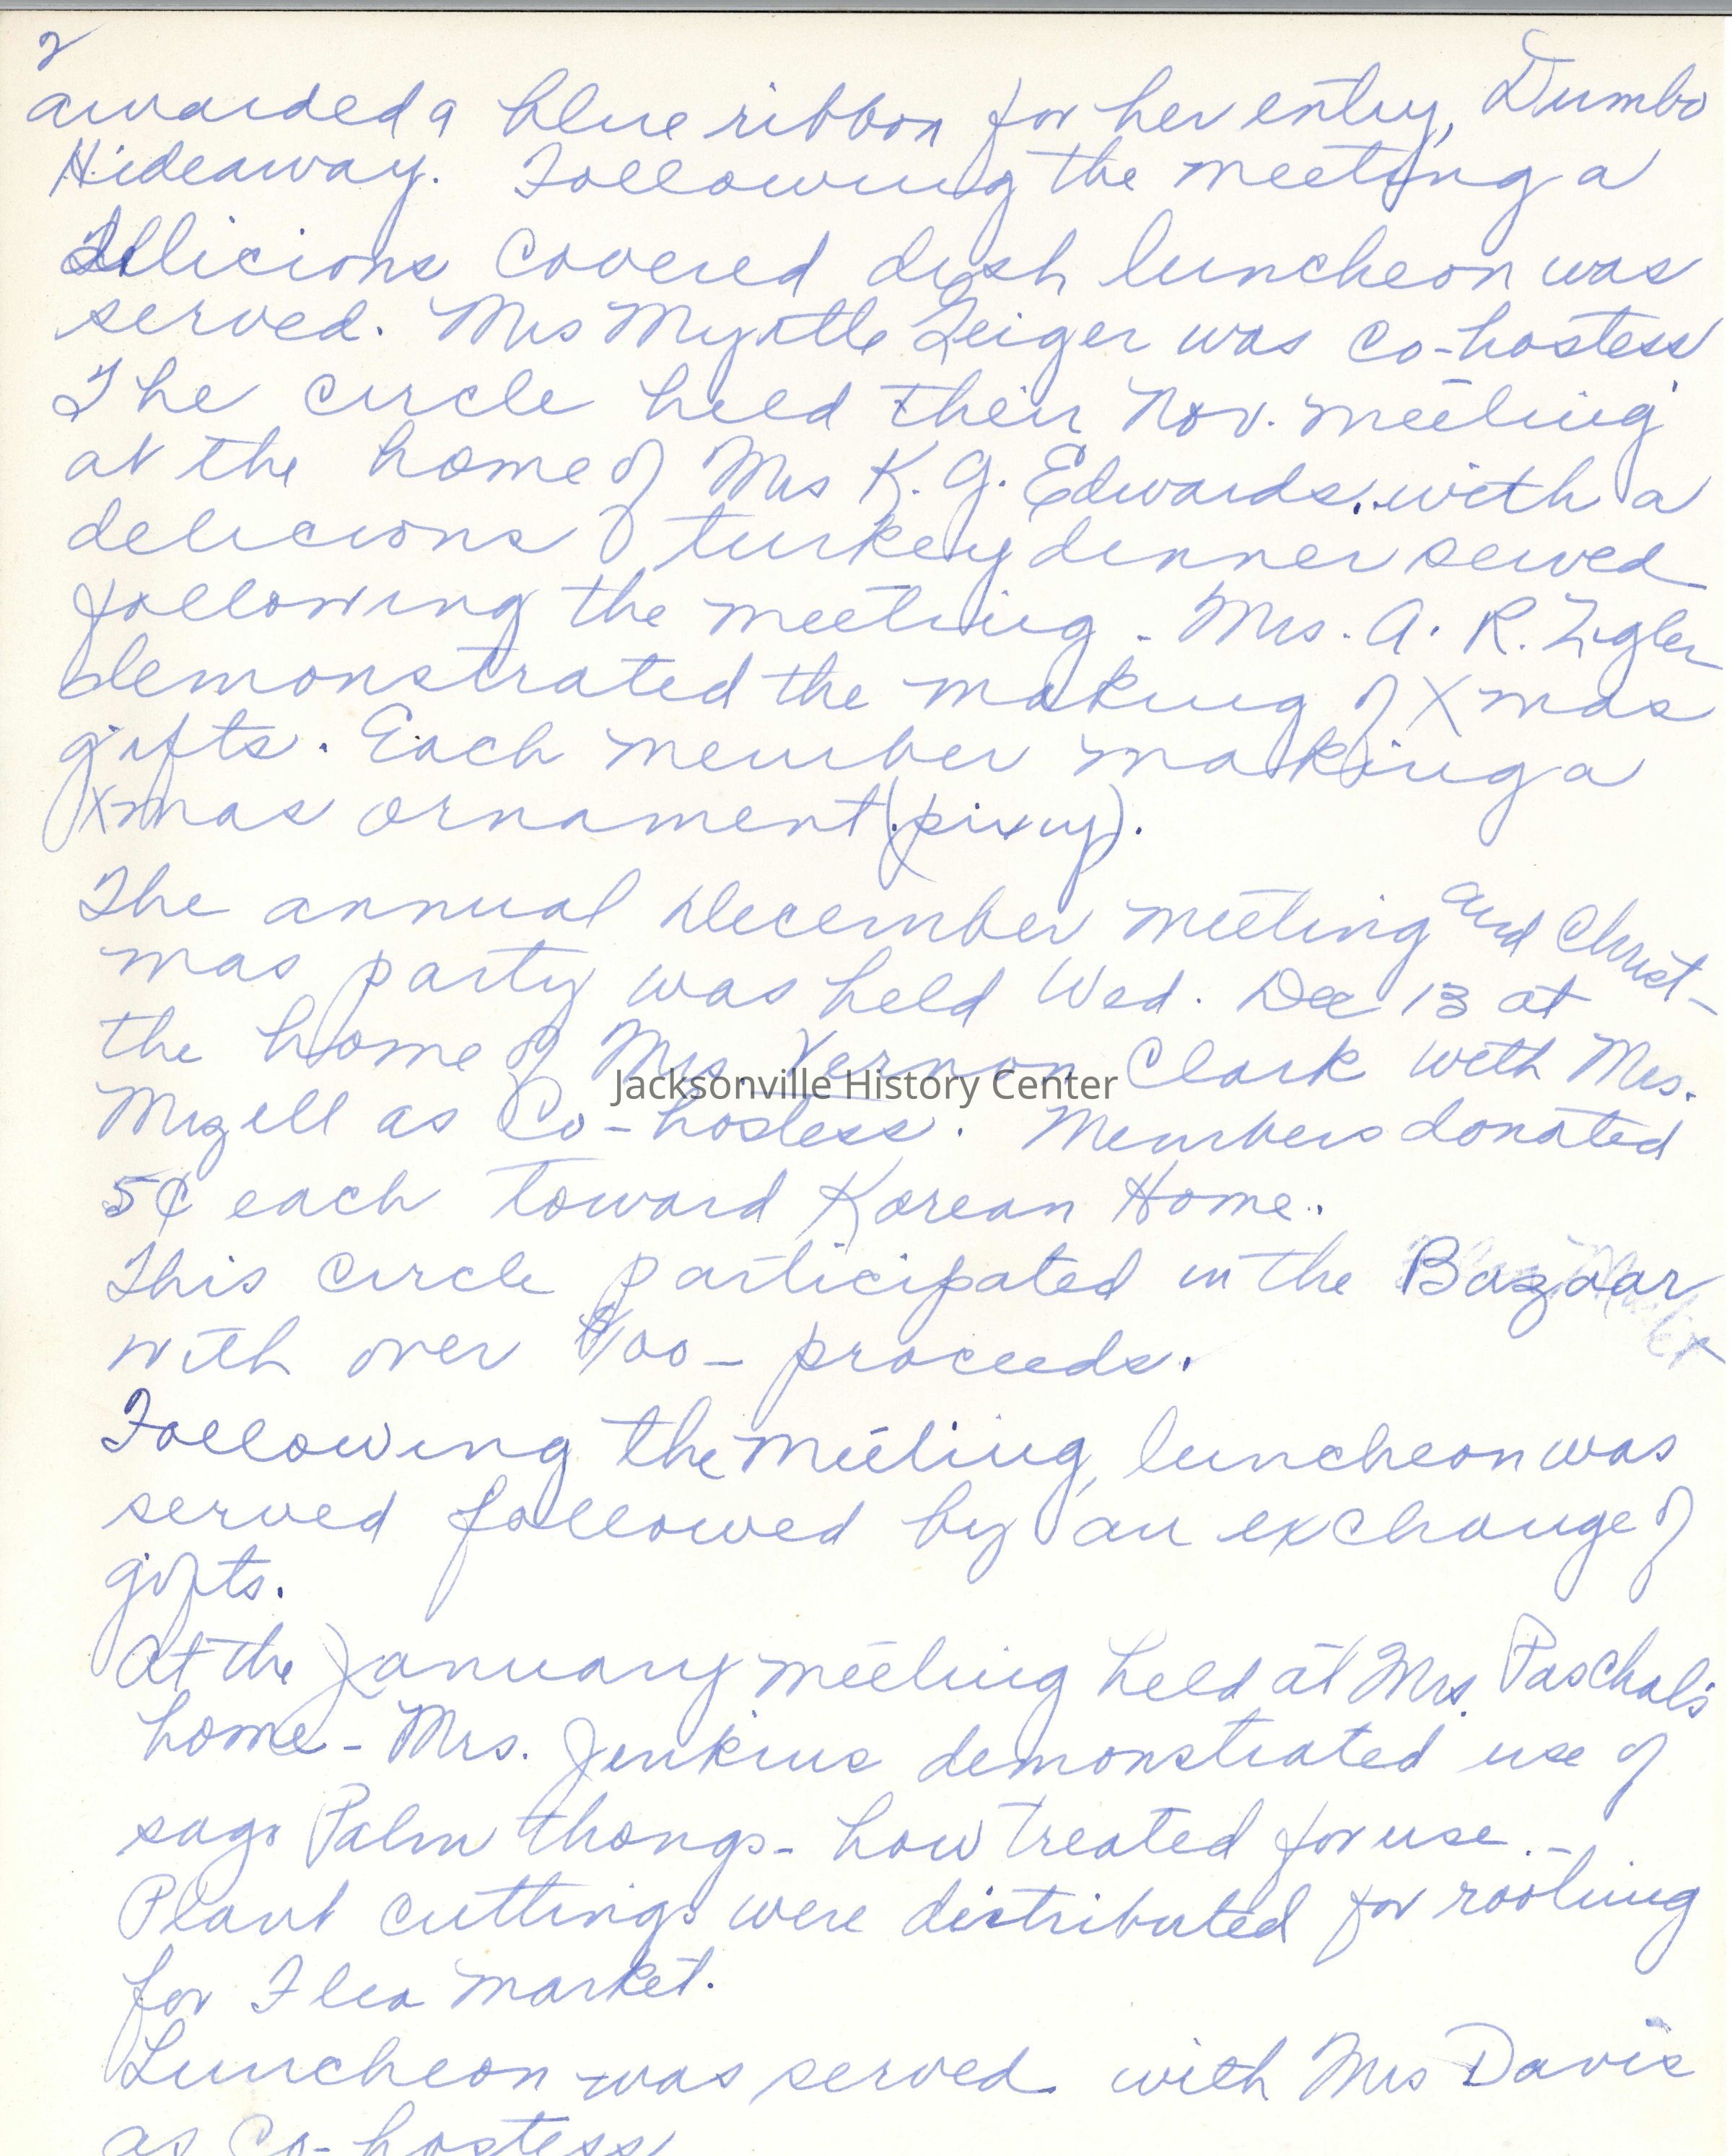 2
awarded a blue ribbon for her entry, Dumbo
Hideaway. Following the meeting a
delicious covered dish luncheon was
served. Mrs Myrtle Geiger was co-hostess
The circle held their Nov. meeting
at the home of Mrs K. G. Edwards, with a
delicious turkey dinner served
following the meeting - Mrs. A. R. Zigler
demonstrated the making of Xmas
gifts. Each member making a
Xmas ornament (pixy).
The annual December meeting and Christ-
mas party was held Wed. Dec 13 at
the home of Mrs. Vernon Clark with Mrs.
Jacksonville History Center
Mizell as Co-hostess. Members donated
5¢ each toward Korean Home.
This circle participated in the Bazaar
with over $100- proceeds.
Following the meeting, luncheon was
served followed by an exchange of
gifts.
At the January meeting held at Mrs. Paschal's
home - Mrs. Jenkins demonstrated use of
sago Palm thongs - how treated for use. -
Plant cuttings were distributed for rooting
for Flea market.
Luncheon was served with Mrs Davis
as Co-hostess